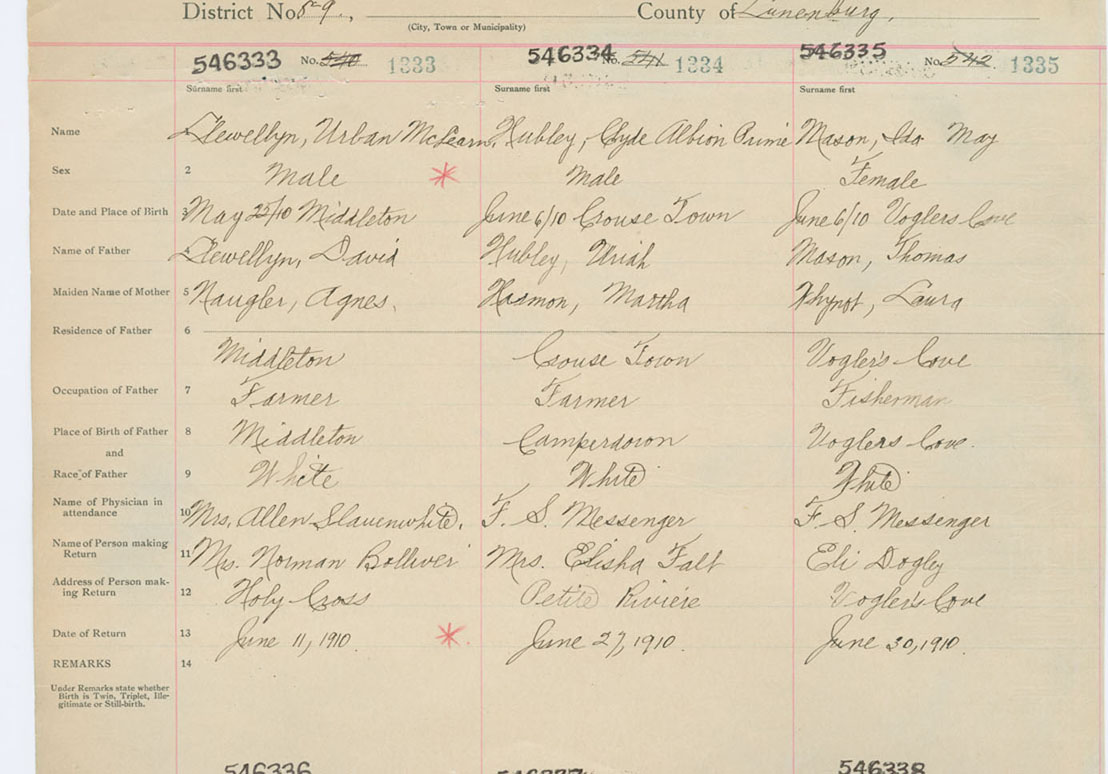 District No. 59., County of Lunenburg,
(City, Town or Municipality)
546333 No. 540 1333 546334 No. 541 1334 546335 No. 542 1335
Surname first Surname first Surname first
Name Llewellyn, Urban McLearn. Hubley, Clyde Albion Prime Mason, Ida May
Sex 2 Male Male Female
Date and Place of Birth 3 May 25/10 Middleton June 6/10 Crouse Town June 6/10 Voglers Cove
Name of Father 4 Llewellyn, David Hubley, Uriah Mason, Thomas
Maiden Name of Mother 5 Naugler, Agnes. Harmon, Martha Whynot, Laura
Residence of Father 6
Middleton Crouse Town Vogler's Cove
Occupation of Father 7 Farmer Farmer Fisherman
Place of Birth of Father 8 Middleton Camperdown Voglers Cove.
and
Race of Father 9 White White White
Name of Physician in
attendance 10 Mrs. Allen Slauenwhite. F. S. Messenger F. S. Messenger
Name of Person making
Return 11 Mrs. Norman Bolliver Mrs. Elisha Falt Eli Dogley
Address of Person mak-
ing Return 12 Holy Cross Petite Riviere Vogler's Cove
Date of Return 13 June 11, 1910. June 27, 1910. June 30, 1910.
REMARKS 14
Under Remarks state whether
Birth is Twin, Triplet, Ille-
gitimate or Still-birth.
546336 546337 546338